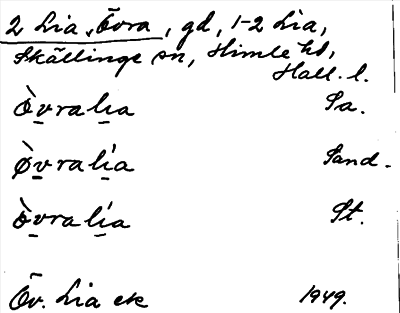 2 Lia, Övra, gd, 1-2 Lia,
Skällinge sn, Himle hd,
Hall. l.
ò̱vrali̱a Sa.
ø̀vrali̱a Sand.
ò̱vrali̱a St.
Öv. Lia ek 1949.